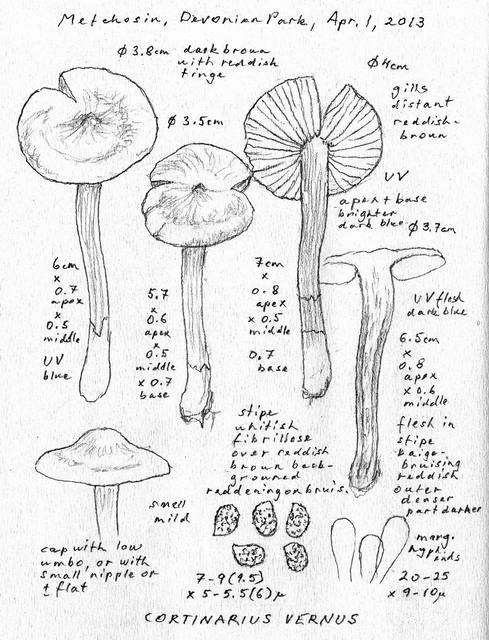 Metchosin, Devonian Park, Apr. 1, 2013
ø 3.8cm dark brown
with reddish
tinge
ø 4cm
gills
distant
reddish-
brown
ø 3.5cm
UV
apex + base
brighter
dark blue
ø 3.7cm
6cm
x
0.7
apex
x
0.5
middle
UV
blue
5.7
x
0.6
apex
x
0.5
middle
x 0.7
base
7cm
x
0.8
apex
x 0.5
middle
0.7
base
UV flesh
dark blue
6.5cm
x
0.8
apex
x 0.6
middle
flesh in
stipe
baige-
bruising
reddish
outer
denser
part darker
stipe
whitish
fibrillose
over reddish
brown back-
grouned
reddening on bruis.
smell
mild
cap with low
umbo, or with
small nipple or
± flat
7-9(9.5)
x 5-5.5(6) µ
marg.
hyph.
ends
20-25
x 9-10µ
CORTINARIUS VERNUS